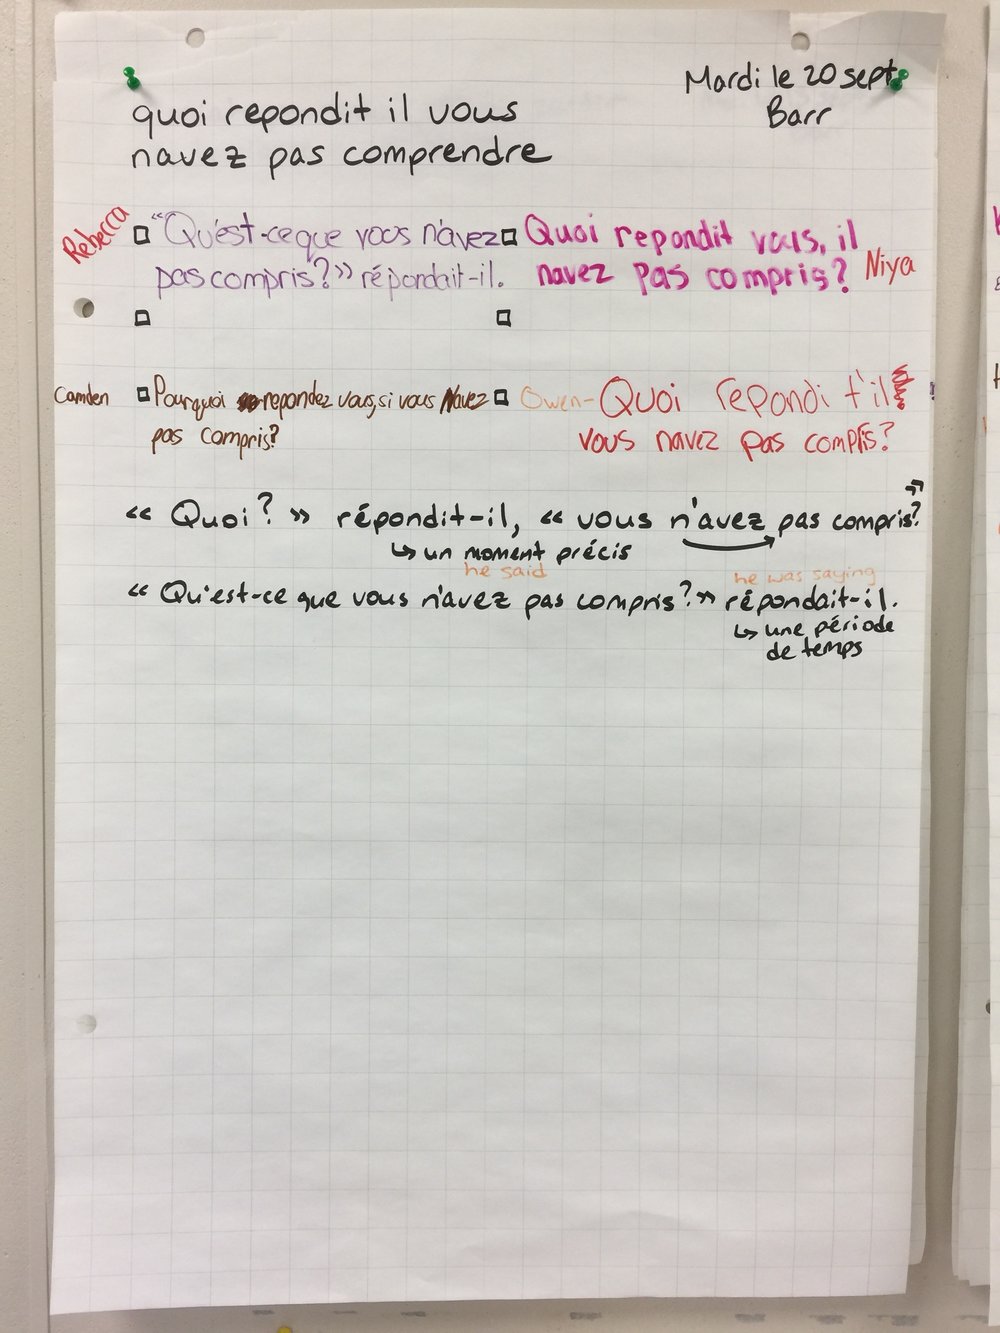 Mardi le 20 sept.
Barr
quoi repondit il vous
navez pas comprendre
Rebecca
“Qu'est-ce que vous n'avez
pas compris?” répondait-il.
Quoi repondit vous, il
navez pas compris?
Niya
Camden
Pourquoi repondez vous, si vous Navez
pas compris?
Owen-
Quoi repondi t'il
vous navez pas compris?
« Quoi? » répondit-il, « vous n'avez pas compris? »
↳ un moment précis
he said
he was saying
« Qu'est-ce que vous n'avez pas compris? » répondait-il.
↳ une période
de temps